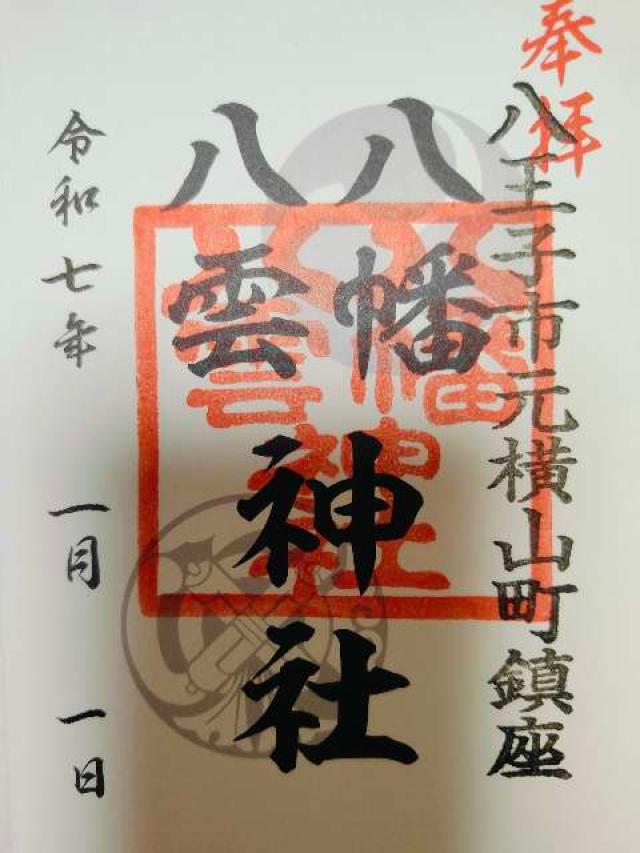 奉拝
八王子市元横山町鎮座
八幡
八雲
神社
八幡
八雲
神社
令和七年 一月 一日